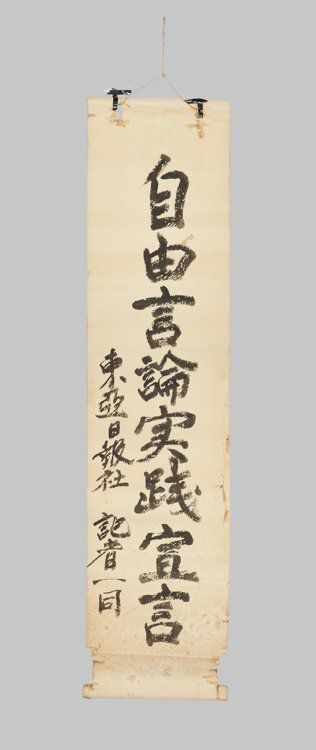 自由言論実践宣言
東亜日報社 記者一同